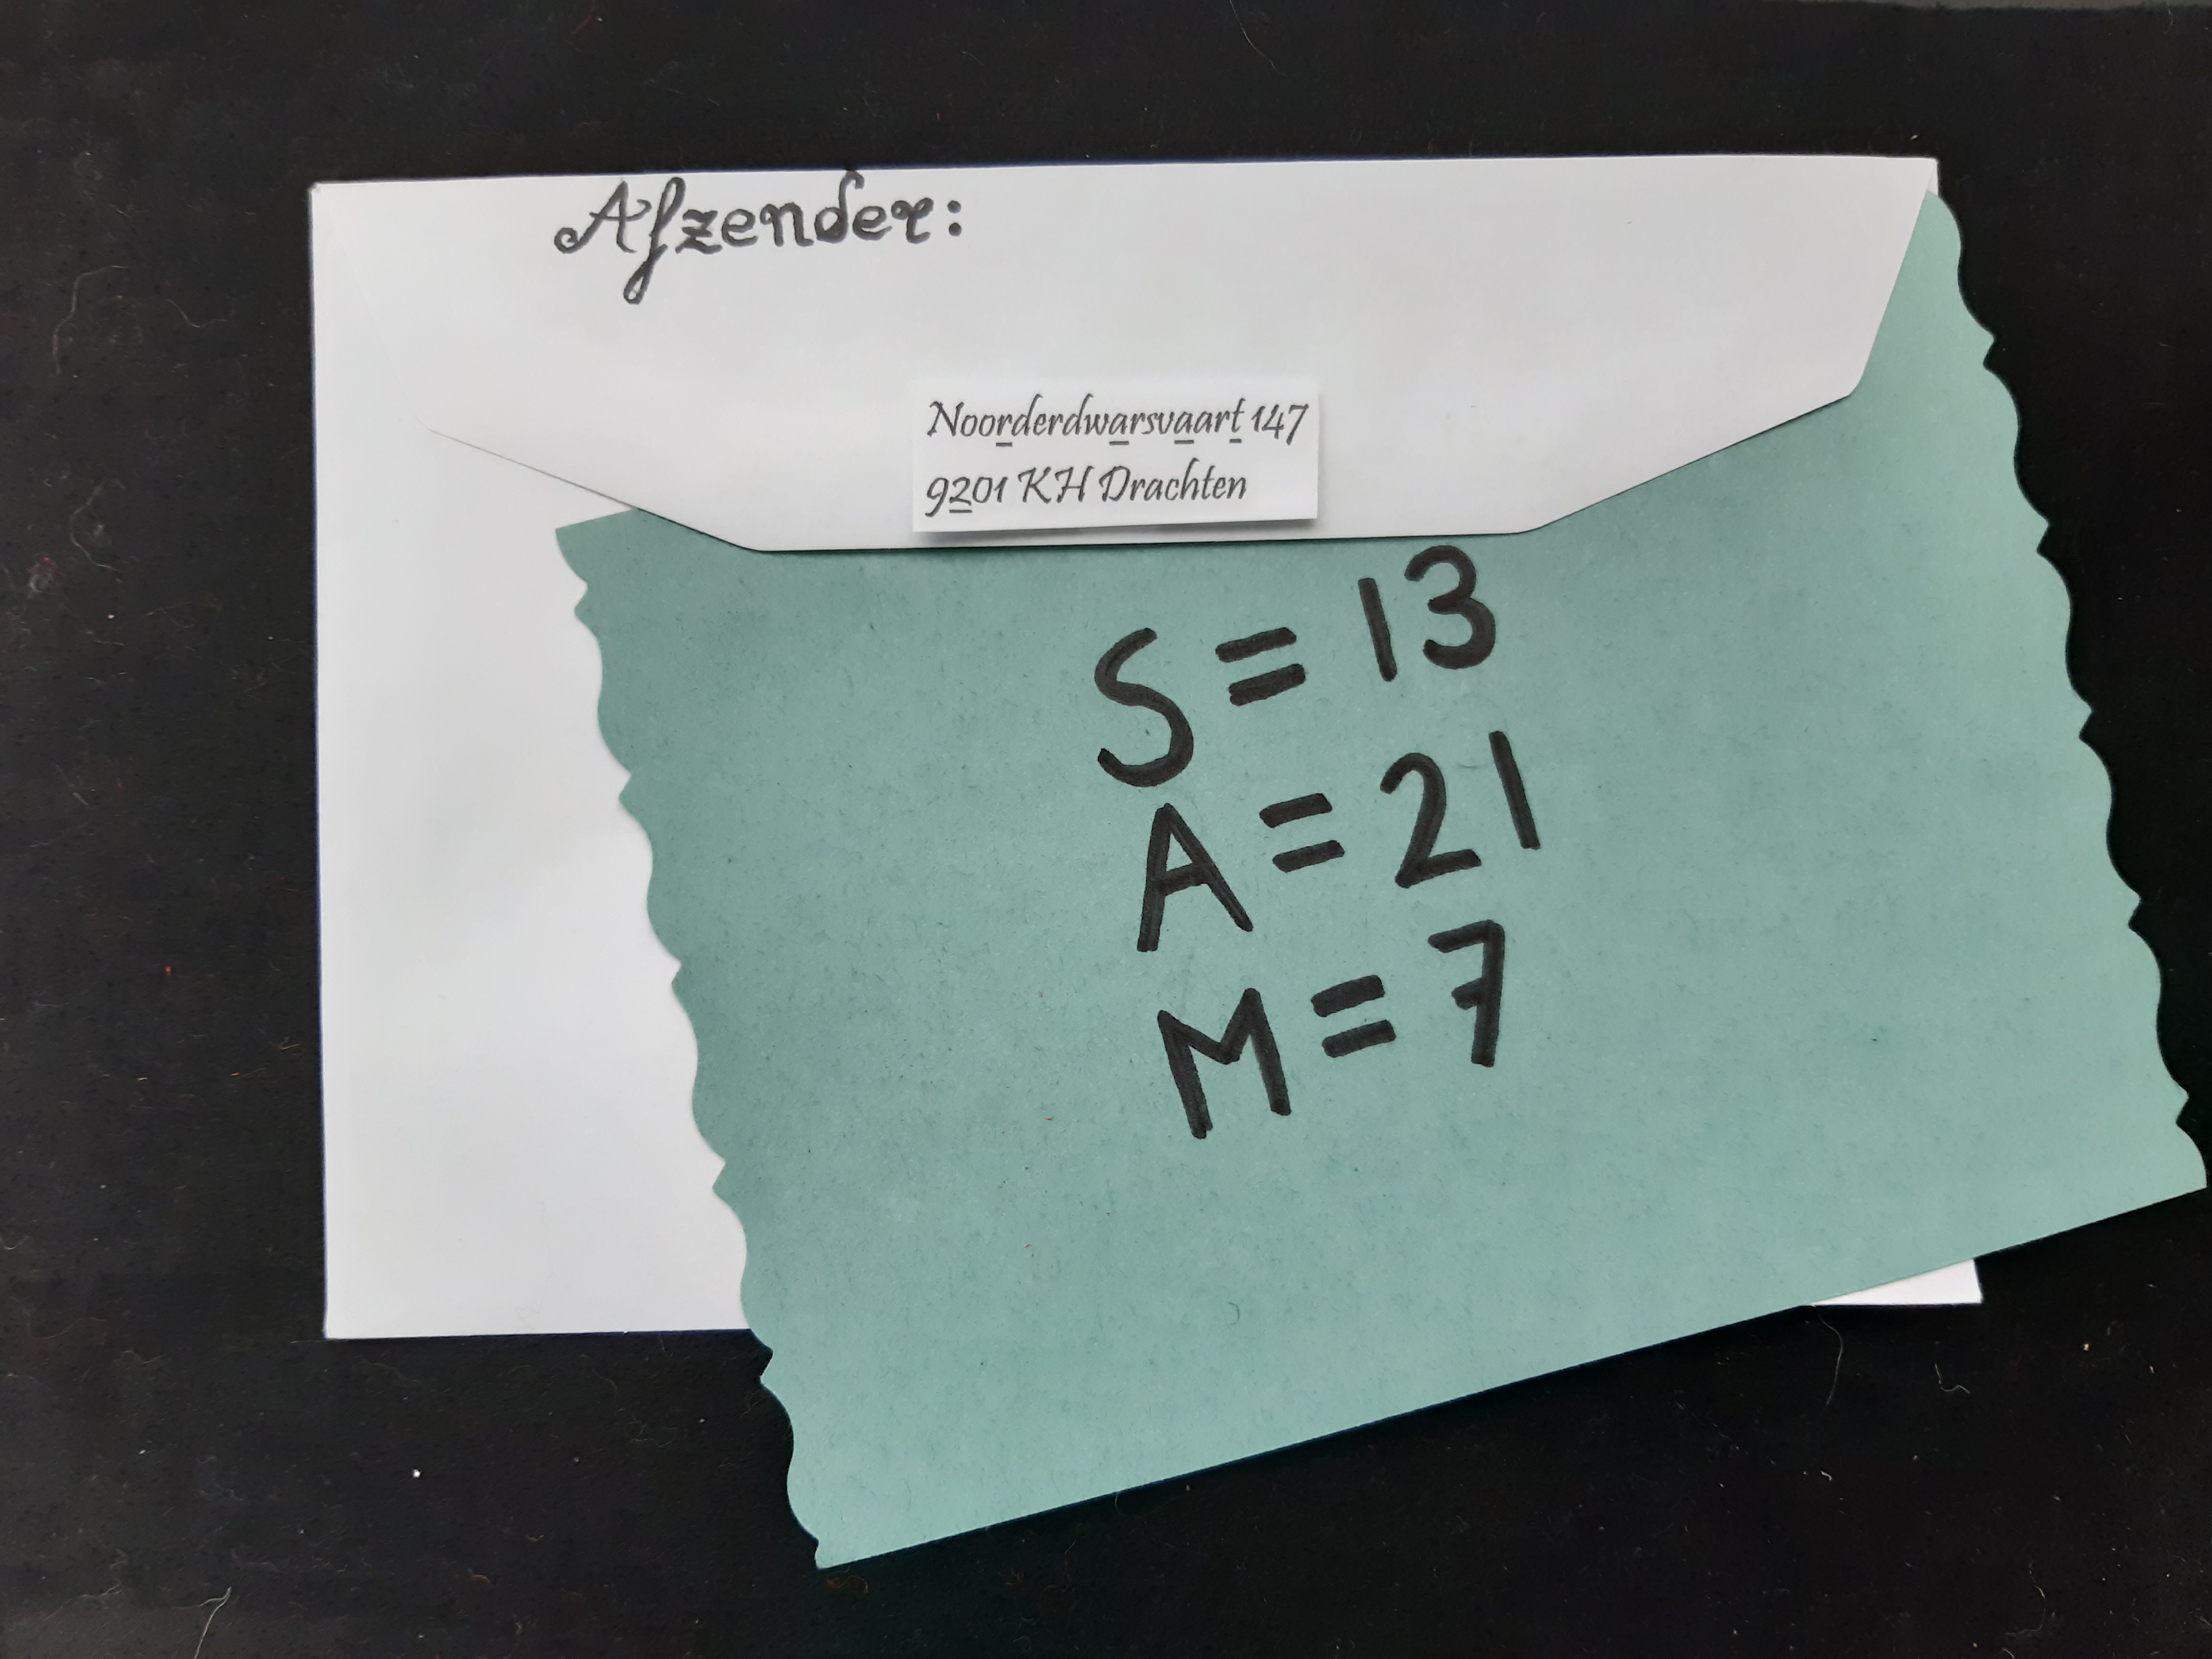 Afzender:
Noorderdwarsvaart 147
9201 KH Drachten
S = 13
A = 21
M = 7